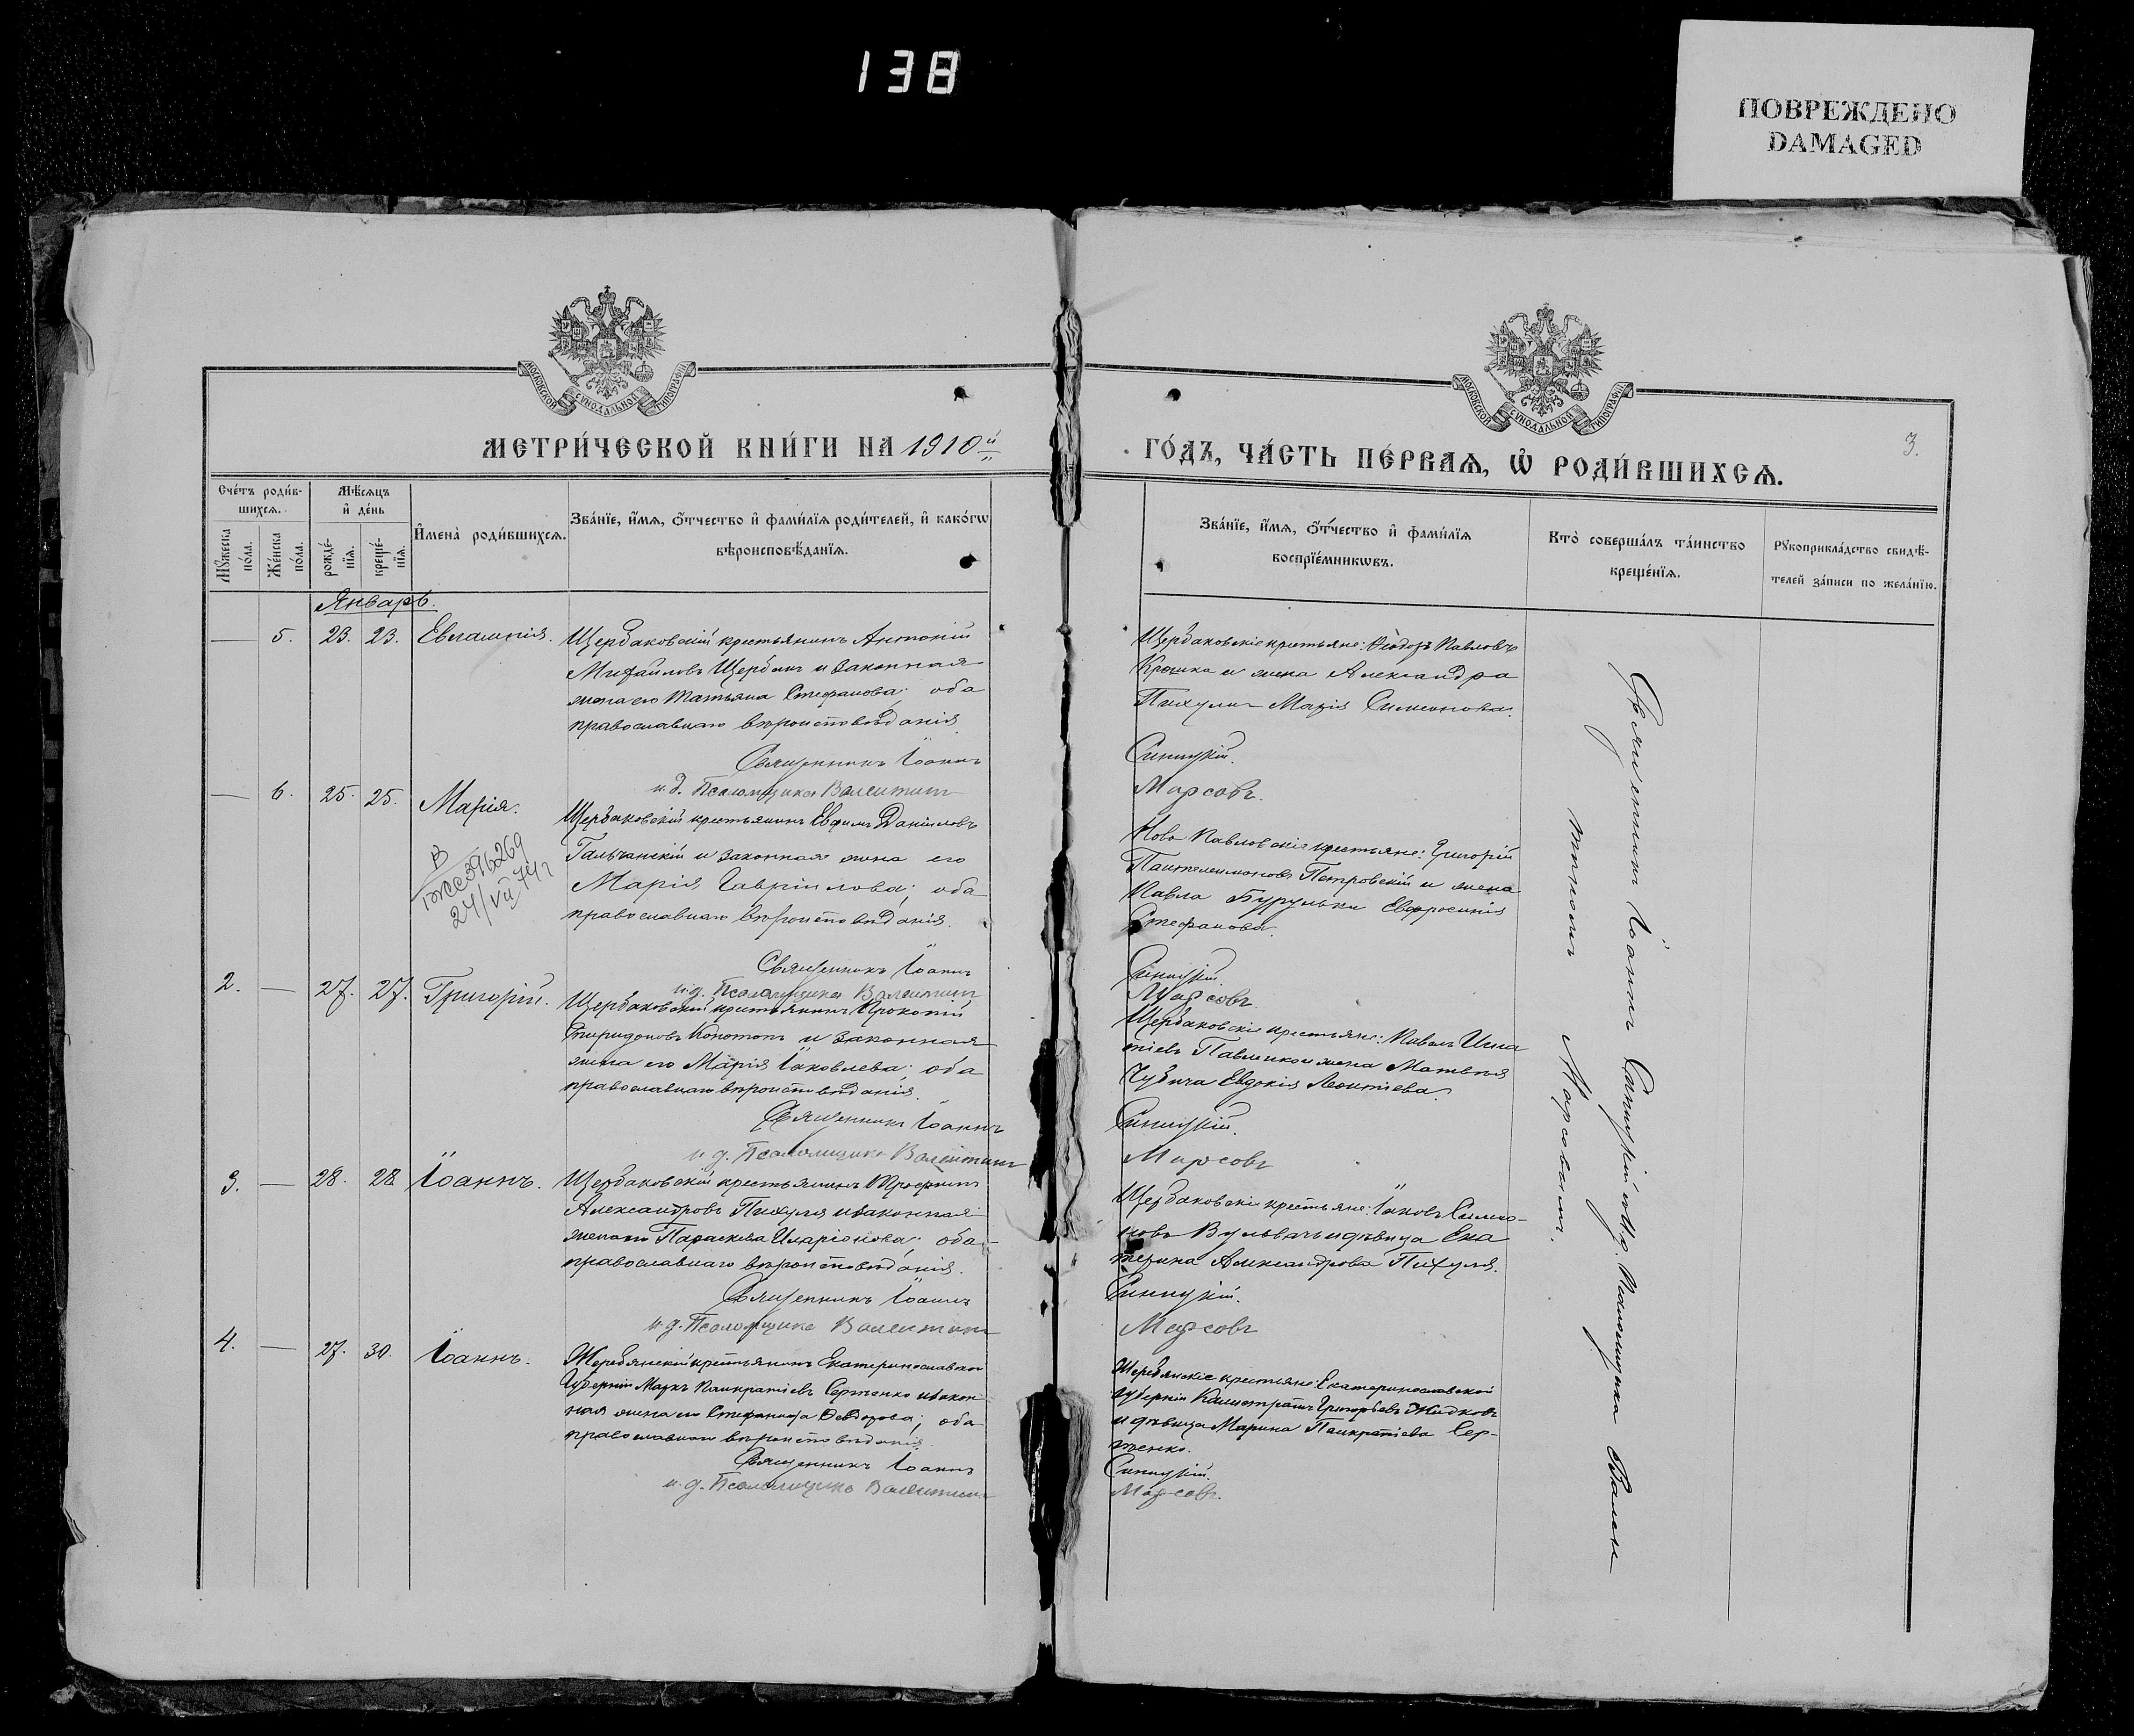 138
ПОВРЕЖДЕНО
DAMAGED
МОСКОВСКОЙ СѴНОДАЛЬНОЙ ТИПОГРАФІИ
МОСКОВСКОЙ СѴНОДАЛЬНОЙ ТИПОГРАФІИ
МЕТРИ́ЧЕСКОЙ КНИ́ГИ НА 1910й
ГО́ДЪ, ЧА́СТЬ ПЕ́РВАѦ, Ѿ РОДИ́ВШИХСѦ.
3.
Сче́тъ роди́в-
шихсѧ.
Мѣсѧцъ
и҆ де́нь
И҆мена̀ роди́вшихсѧ.
Зва́нїе, и҆́мѧ, ѻ҆́тчество и҆ фами́лїѧ роди́телей, и҆ како́гѡ
вѣроисповѣ́данїѧ.
Мꙋ́жеска
по́ла.
Же́нска
по́ла.
рожде́-
нїѧ.
креще́-
нїѧ.
Зва́нїе, и҆́мѧ, ѻ҆́тчество и҆ фами́лїѧ
воспрїе́мникѡвъ.
Кто̀ соверша́лъ та́инство
креще́нїѧ.
Рꙋкоприкла́дство свидѣ́-
телей за́писи по жела́нїю.
Январь.
— 5. 23. 23. Евлампія. Щербаковскій крестьянинъ Антоній
Михаиловъ Щербакъ и законная
жена его Татьяна Стефанова; оба
православнаго вѣроисповѣданія.
Священникъ Іоаннъ
и.д. Псаломщика Валентинъ
Щербаковскіе крестьяне: Ѳеодоръ Павловъ
Крошка и жена Александра
Пихули Марія Симеонова.
Синицкій.
Марсовъ.
— 6. 25. 25. Марія.
Щербаковскій крестьянинъ Евфимъ Даніиловъ
Гальчанскій и законная жена его
Марія Гавріилова; оба
православнаго вѣроисповѣданія.
Священникъ Іоаннъ
и.д. Псаломщика Валентинъ
396269
24/VII 74 г
Ново Павловскіе крестьяне: Григорій
Пантелеимоновъ Петровскій и жена
Павла Бурульки Евфросинія
Стефанова.
Синицкій.
Марсовъ.
2. — 27. 27. Григорій.
Щербаковскій крестьянинъ Прокопій
Спиридоновъ Конотопъ и законная
жена его Марія Іаковлева; оба
православнаго вѣроисповѣданія.
Священникъ Іоаннъ
и.д. Псаломщика Валентинъ
Щербаковскіе крестьяне: Павелъ Игна
тіевъ Павленко и жена Матвѣя
Чубича Евдокія Леонтіева.
Синицкій.
Марсовъ
3. — 28. 28 Іоаннъ. Щербаковскій крестьянинъ Трофимъ
Александровъ Пихуля и законная
жена его Параскева Иларіонова; оба
православнаго вѣроисповѣданія.
Священникъ Іоаннъ
и.д. Псаломщика Валентинъ
Щербаковскіе крестьяне: Іаковъ Симео-
новъ Вульвачъ и дѣвица Ека
терина Александрова Пихуля.
Синицкій.
Марсовъ
4. — 27. 30. Іоаннъ. Жеребянскій крестьянинъ Екатеринославской
Губерніи Маркъ Панкратіевъ Сергиенко и закон
ная жена его Стефанида Ѳеодорова; оба
православнаго вѣроисповѣданія.
Священникъ Іоаннъ
и.д. Псаломщика Валентинъ
Жеребянскіе крестьяне Екатеринославской
губерніи Калистратъ Григорьевъ Жидковъ
и дѣвица Марина Панкратіева Сер-
гиенко.
Синицкій.
Марсовъ.
Священникъ Іоаннъ Синицкій съ и.д. Псаломщика Вален
тиномъ Марсовымъ.